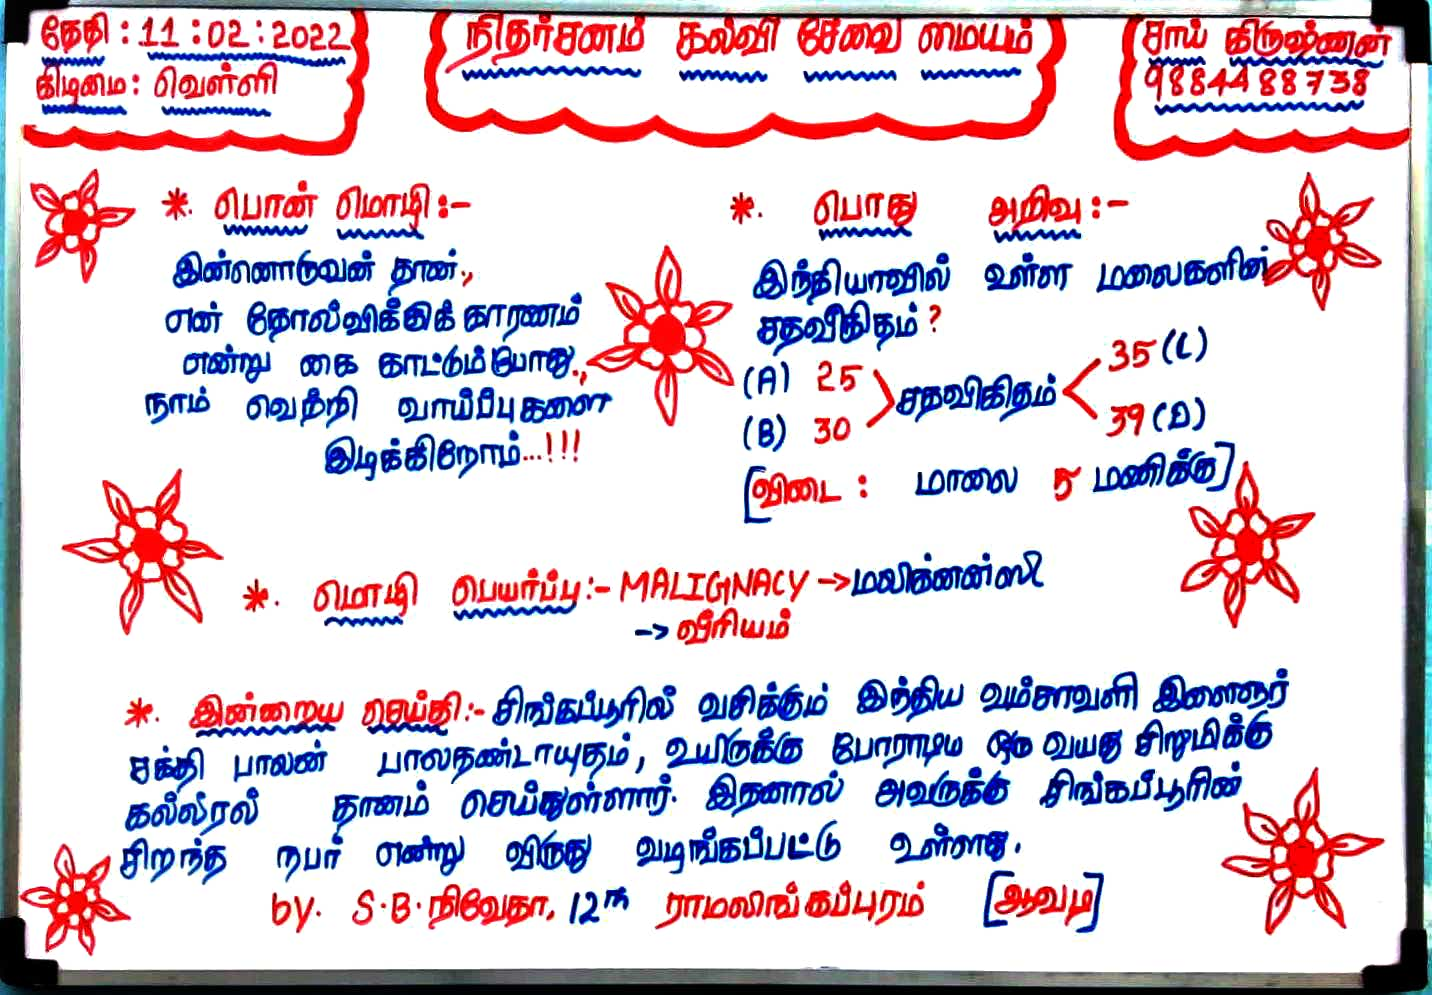 தேதி : 11 : 02 : 2022
கிடிமை : வெள்ளி
நிதர்சனம் கல்வி சேவை மையம்
சாய் கிருஷ்ணன்
9884488738
*. பொன் மொழி :-
இன்னொருவன் தான்.,
என் தோல்விக்குக் காரணம்
என்று கை காட்டும்போது.,
நாம் வெற்றி வாய்ப்புகளை
இடிக்கிறோம்...!!!
*. பொது அறிவு :-
இந்தியாவில் உள்ள மலைகளின்
சதவீகிதம் ?
(A) 25
(B) 30
சதவிகிதம்
35 (C)
39 (D)
[விடை : மாலை 5 மணிக்கு]
*. மொழி பெயர்ப்பு :- MALIGNACY -> மலிக்னன்ஸி
-> வீரியம்
*. இன்றைய செய்தி :- சிங்கப்பூரில் வசிக்கும் இந்திய வம்சாவளி இளைஞர்
சக்தி பாலன் பாலதண்டாயுதம், உயிருக்கு போராடிய ஒரு வயது சிறுமிக்கு
கல்லீரல் தானம் செய்துள்ளார். இதனால் அவருக்கு சிங்கப்பூரின்
சிறந்த நபர் என்று விருது வடிங்கப்பட்டு உள்ளது.
by. S.B. நிவேதா, 12th ராமலிங்கப்புரம் [ஆவடி]